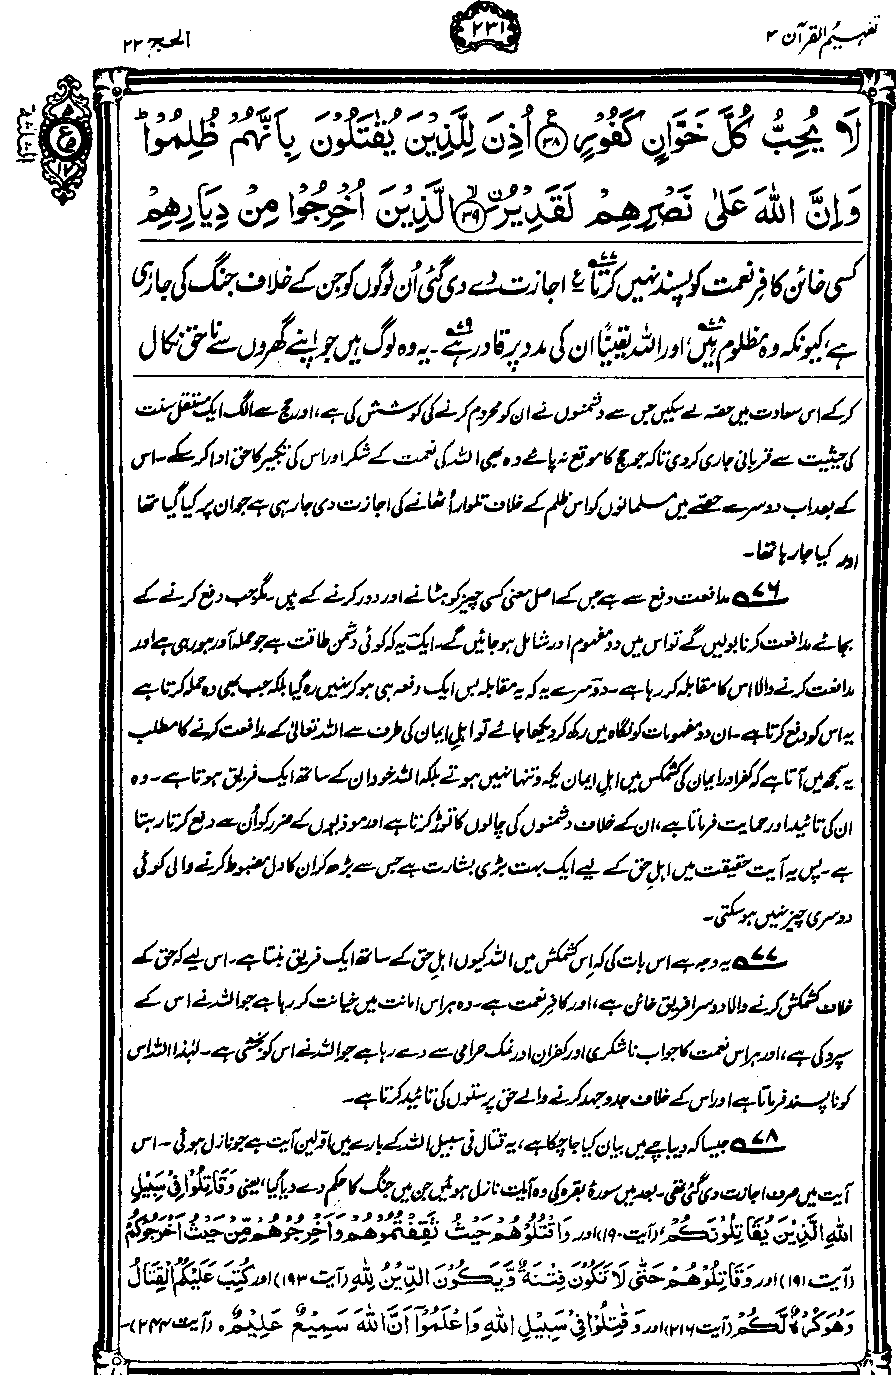 تفہیم القرآن ۳
۲۳۱
الحج ۲۲
لَا يُحِبُّ كُلَّ خَوَّانٍ كَفُوْرٍ ﴿۳۸﴾ اُذِنَ لِلَّذِيْنَ يُقٰتَلُوْنَ بِاَنَّهُمْ ظُلِمُوْا ؕ
وَ اِنَّ اللّٰهَ عَلٰى نَصْرِهِمْ لَقَدِيْرُ ﴿۳۹﴾ ۙ الَّذِيْنَ اُخْرِجُوْا مِنْ دِيَارِهِمْ
ع
۱۲
کسی خائن کافرِ نعمت کو پسند نہیں کرتا۷۷ ؏ اجازت دے دی گئی اُن لوگوں کو جن کے خلاف جنگ کی جارہی
ہے، کیونکہ وہ مظلوم ہیں۷۸، اور اللہ یقیناً ان کی مدد پر قادر ہے۷۹۔ یہ وہ لوگ ہیں جو اپنے گھروں سے ناحق نکال
کرکے اس سعادت میں حصہ لے سکیں جس سے دشمنوں نے ان کو محروم کرنے کی کوشش کی ہے، اور حج سے الگ ایک مستقل سنت
کی حیثیت سے قربانی جاری کردی تاکہ جو حج کا موقع نہ پائے وہ بھی اللہ کی نعمت کے شکر اور اس کی تکبیر کا حق ادا کرسکے۔ اس
کے بعد اب دوسرے حصّے میں مسلمانوں کو اس ظلم کے خلاف تلوار اُٹھانے کی اجازت دی جارہی ہے جو ان پر کیا گیا تھا
اور کیا جارہا تھا۔
۷۶؎ مدافعت دفع سے ہے جس کے اصل معنی کسی چیز کو ہٹانے اور دور کرنے کے ہیں۔ مگر جب دفع کرنے کے
بجائے مدافعت کرنا بولیں گے تو اس میں دو مفہوم اور شامل ہوجائیں گے۔ ایک یہ کہ کوئی دشمن طاقت ہے جو حملہ آور ہورہی ہے اور
مدافعت کرنے والا اس کا مقابلہ کررہا ہے۔ دوسرے یہ کہ یہ مقابلہ بس ایک دفعہ ہی ہوکر نہیں رہ گیا بلکہ جب بھی وہ حملہ کرتا ہے
یہ اس کو دفع کرتا ہے۔ ان دو مفہومات کو نگاہ میں رکھ کر دیکھا جائے تو اہلِ ایمان کی طرف سے اللہ تعالیٰ کے مدافعت کرنے کا مطلب
یہ سمجھ میں آتا ہے کہ کفر اور ایمان کی کشمکش میں اہلِ ایمان یکہ و تنہا نہیں ہوتے بلکہ اللہ خود ان کے ساتھ ایک فریق ہوتا ہے۔ وہ
ان کی تائید اور حمایت فرماتا ہے، ان کے خلاف دشمنوں کی چالوں کا توڑ کرتا ہے اور موذیوں کے ضرر کو اُن سے دفع کرتا رہتا
ہے۔ پس یہ آیت حقیقت میں اہلِ حق کے لیے ایک بہت بڑی بشارت ہے جس سے بڑھ کر ان کا دل مضبوط کرنے والی کوئی
دوسری چیز نہیں ہوسکتی۔
۷۷؎ یہ وجہ ہے اس بات کی کہ اِس کشمکش میں اللہ کیوں اہلِ حق کے ساتھ ایک فریق بنتا ہے۔ اس لیے کہ حق کے
خلاف کشمکش کرنے والا دوسرا فریق خائن ہے، اور کافرِ نعمت ہے۔ وہ ہر اس امانت میں خیانت کررہا ہے جو اللہ نے اس کے
سپرد کی ہے، اور ہر اس نعمت کا جواب ناشکری اور کفران اور نمک حرامی سے دے رہا ہے جو اللہ نے اس کو بخشی ہے۔ لہٰذا اللہ اس
کو ناپسند فرماتا ہے اور اس کے خلاف جدوجہد کرنے والے حق پرستوں کی تائید کرتا ہے۔
۷۸؎ جیسا کہ دیباچے میں بیان کیا جاچکا ہے، یہ قتال فی سبیل اللہ کے بارے میں اوّلین آیت ہے جو نازل ہوئی۔ اس
آیت میں صرف اجازت دی گئی تھی۔ بعد میں سورۂ بقرہ کی وہ آیات نازل ہوئیں جن میں جنگ کا حکم دے دیا گیا، یعنی وَقَاتِلُوْا فِیْ سَبِیْلِ
اللّٰهِ الَّذِیْنَ یُقَاتِلُوْنَکُمْ (آیت ۱۹۰) اور وَاقْتُلُوْهُمْ حَیْثُ ثَقِفْتُمُوْهُمْ وَاَخْرِجُوْهُمْ مِّنْ حَیْثُ اَخْرَجُوْکُمْ
(آیت ۱۹۱) اور وَقَاتِلُوْهُمْ حَتّٰی لَا تَکُوْنَ فِتْنَةٌ وَّیَکُوْنَ الدِّیْنُ لِلّٰهِ (آیت ۱۹۳) اور کُتِبَ عَلَیْکُمُ الْقِتَالُ
وَهُوَ کُرْهٌ لَّکُمْ (آیت ۲۱۶) اور وَقَاتِلُوْا فِیْ سَبِیْلِ اللّٰهِ وَاعْلَمُوْا اَنَّ اللّٰهَ سَمِیْعٌ عَلِیْمٌ، (آیت ۲۴۴)۔